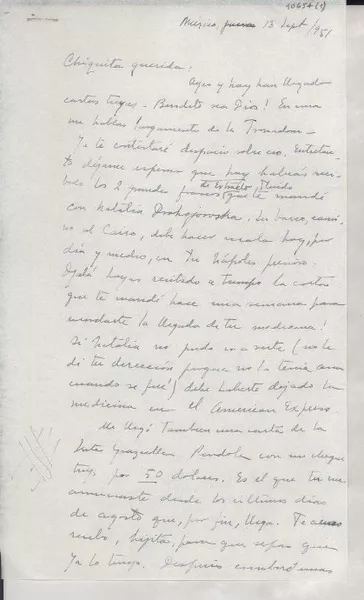 10654(1)
Mexico, jueves 13 Sept/951
Chiquita querida:
Ayer y hoy han llegado
cartas tuyas - Bendito sea Dios! En una
me hablas largamente de la
Ya te contestaré despacio sobre eso. Entretan-
to déjame esperar que hoy habrás reci-
bido los 2 grandes frascos de Fluido que te mandé
con Natalia Su barco, cami-
no al Cairo, debe hacer escala hoy, por
día y medio, en Tu Nápoles precioso.
Ojalá hayas recibido a tiempo la carta
que te mandé hace una semana para
la llegada de tu medicina!
Si Natalia no pudo ir a verte (no le
di tu dirección porque no la tenía aun
cuando se fue) debe haberte dejado la
medicina en el American Express.
Me llegó también una carta de la
Pandola con un cheque
tuyo, por 50 dolares. Es el que tu me
anunciaste desde los últimos días
de agosto que, por fin, llega. Te acuso
recibo, hijita, para que sepas que
ya lo tengo. Después